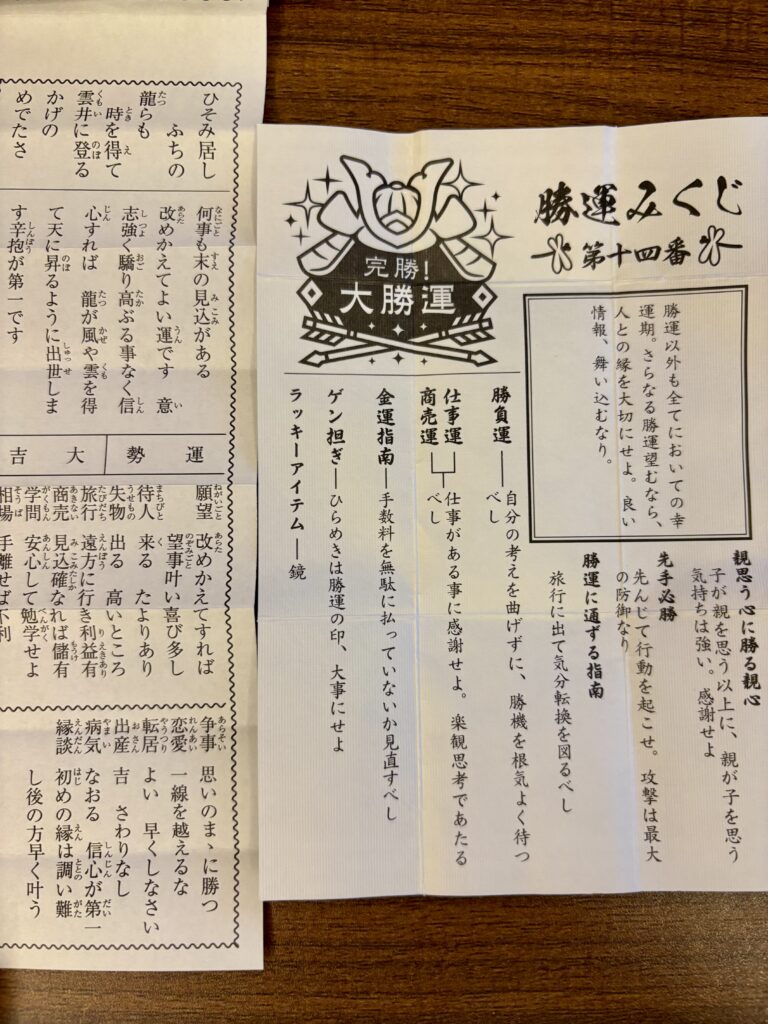 勝運みくじ
第十四番
完勝!
大勝運
勝運以外も全てにおいての幸
運期。さらなる勝運望むなら、
人との縁を大切にせよ。良い
情報、舞い込むなり。
親思う心に勝る親心
子が親を思う以上に、親が子を思う
気持ちは強い。感謝せよ
先手必勝
先んじて行動を起こせ。攻撃は最大
の防御なり
勝運に通ずる指南
旅行に出て気分転換を図るべし
勝負運―自分の考えを曲げずに、勝機を根気よく待つ
べし
仕事運
商売運
仕事がある事に感謝せよ。楽観思考であたる
べし
金運指南―手数料を無駄に払っていないか見直すべし
ゲン担ぎ―ひらめきは勝運の印、大事にせよ
ラッキーアイテム―鏡
ひそみ居し
ふちの
龍らも
時を得て
雲井に登る
かげの
めでたさ
何事も末の見込がある
改めかえてよい運です 意
志強く驕り高ぶる事なく信
心すれば 龍が風や雲を得
て天に昇るように出世しま
す辛抱が第一です
運勢 大吉
願望 改めかえてすれば
望事叶い喜び多し
待人 来る たよりあり
失物 出る 高いところ
旅行 遠方に行き利益有
商売 見込確なれば儲有
学問 安心して勉学せよ
相場 手離せば不利
争事 思いのまゝに勝つ
恋愛 一線を越えるな
転居 よい 早くしなさい
出産 吉 さわりなし
病気 なおる 信心が第一
縁談 初めの縁は調い難
し後の方早く叶う